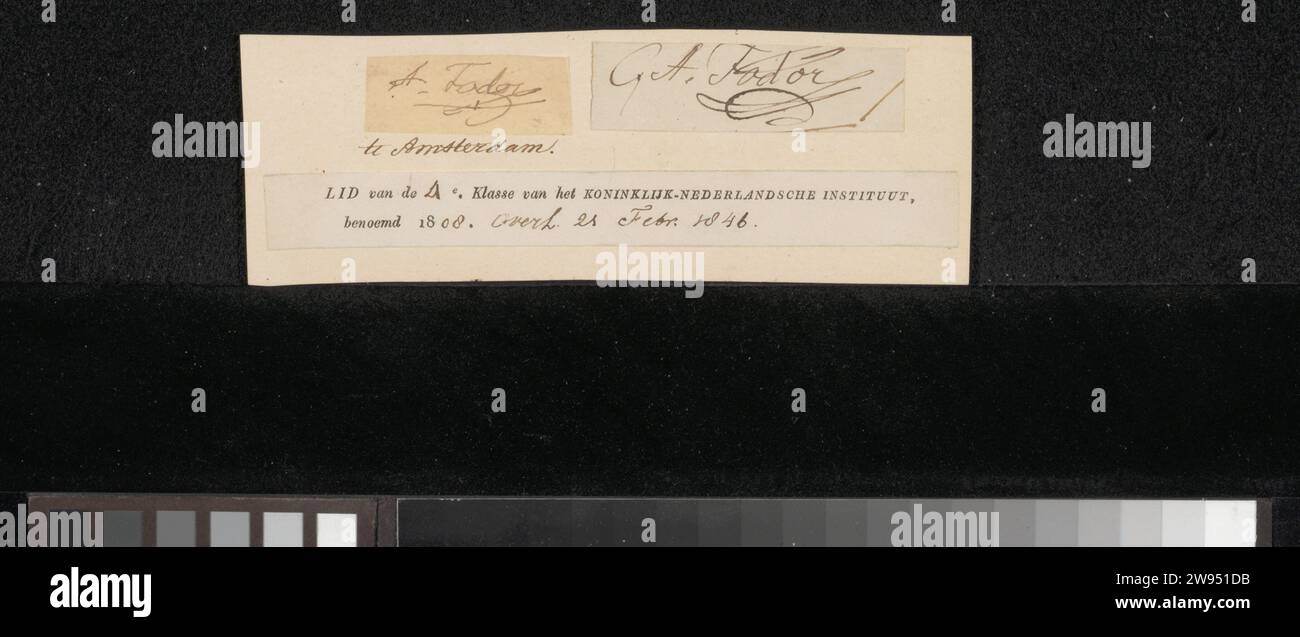 A. Fodor
C, A. Fodor
te Amsterdam.
LID van de 4e. Klasse van het KONINKLIJK-NEDERLANDSCHE INSTITUUT,
benoemd 1808. Overl. 21 Febr. 1846.
alamy
Image ID: 2W951DB
www.alamy.com